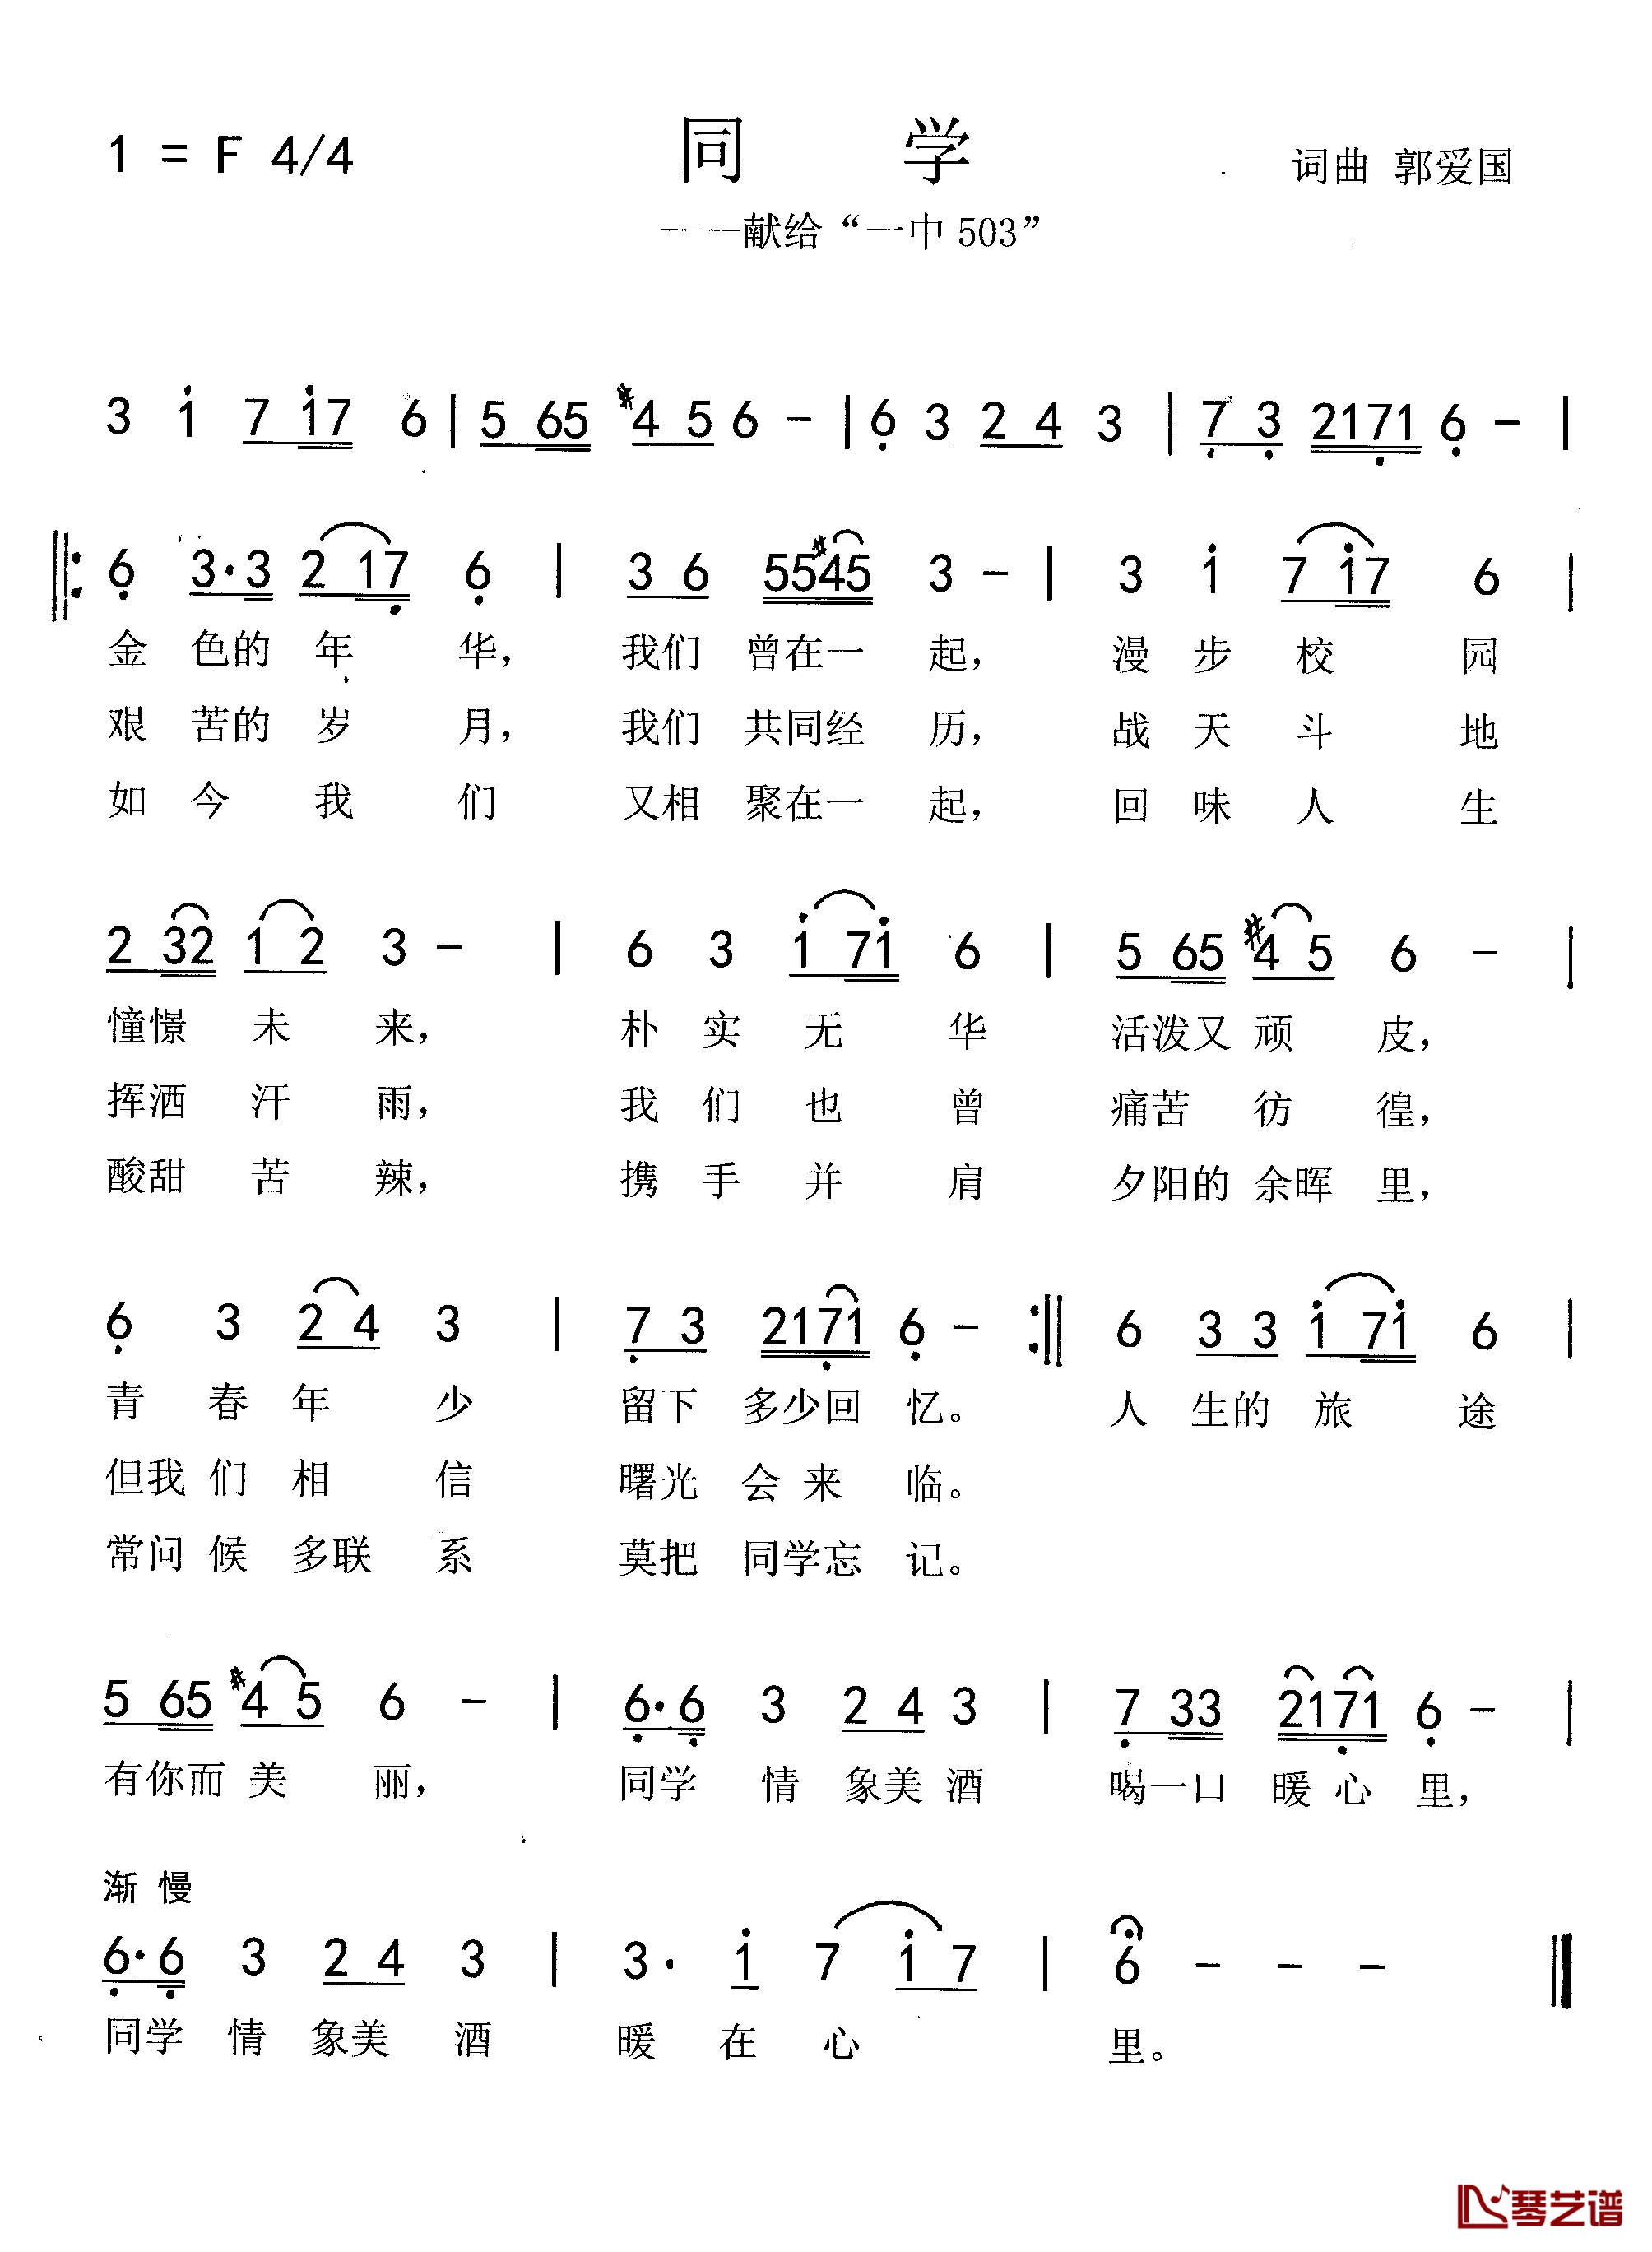 1 = F 4/4 同 学 词曲 郭爱国
----献给“一中 503”
3 1 7 17 6 | 5 65 #4 5 6 - | 6 3 2 4 3 | 7 3 2171 6 - |
6 3·3 2 17 6 | 3 6 55#45 3 - | 3 1 7 17 6 |
金 色的 年 华， 我们 曾在一 起， 漫 步 校 园
艰 苦的 岁 月， 我们 共同经 历， 战 天 斗 地
如 今 我 们 又相 聚在一 起， 回 味 人 生
2 32 1 2 3 - | 6 3 1 71 6 | 5 65 #4 5 6 - |
憧憬 未 来， 朴 实 无 华 活泼又 顽 皮，
挥洒 汗 雨， 我 们 也 曾 痛苦 彷 徨，
酸甜 苦 辣， 携 手 并 肩 夕阳的 余晖 里，
6 3 2 4 3 | 7 3 2171 6 - :|| 6 3 3 1 71 6 |
青 春 年 少 留下 多少回 忆。 人 生的 旅 途
但我 们 相 信 曙光 会 来 临。
常问 候 多联 系 莫把 同学忘 记。
5 65 #4 5 6 - | 6·6 3 2 4 3 | 7 33 2171 6 - |
有你而 美 丽， 同学 情 象美 酒 喝一口 暖 心 里，
渐 慢
6·6 3 2 4 3 | 3· 1 7 1 7 | 6 - - - ||
同学 情 象美 酒 暖 在 心 里。
琴艺谱